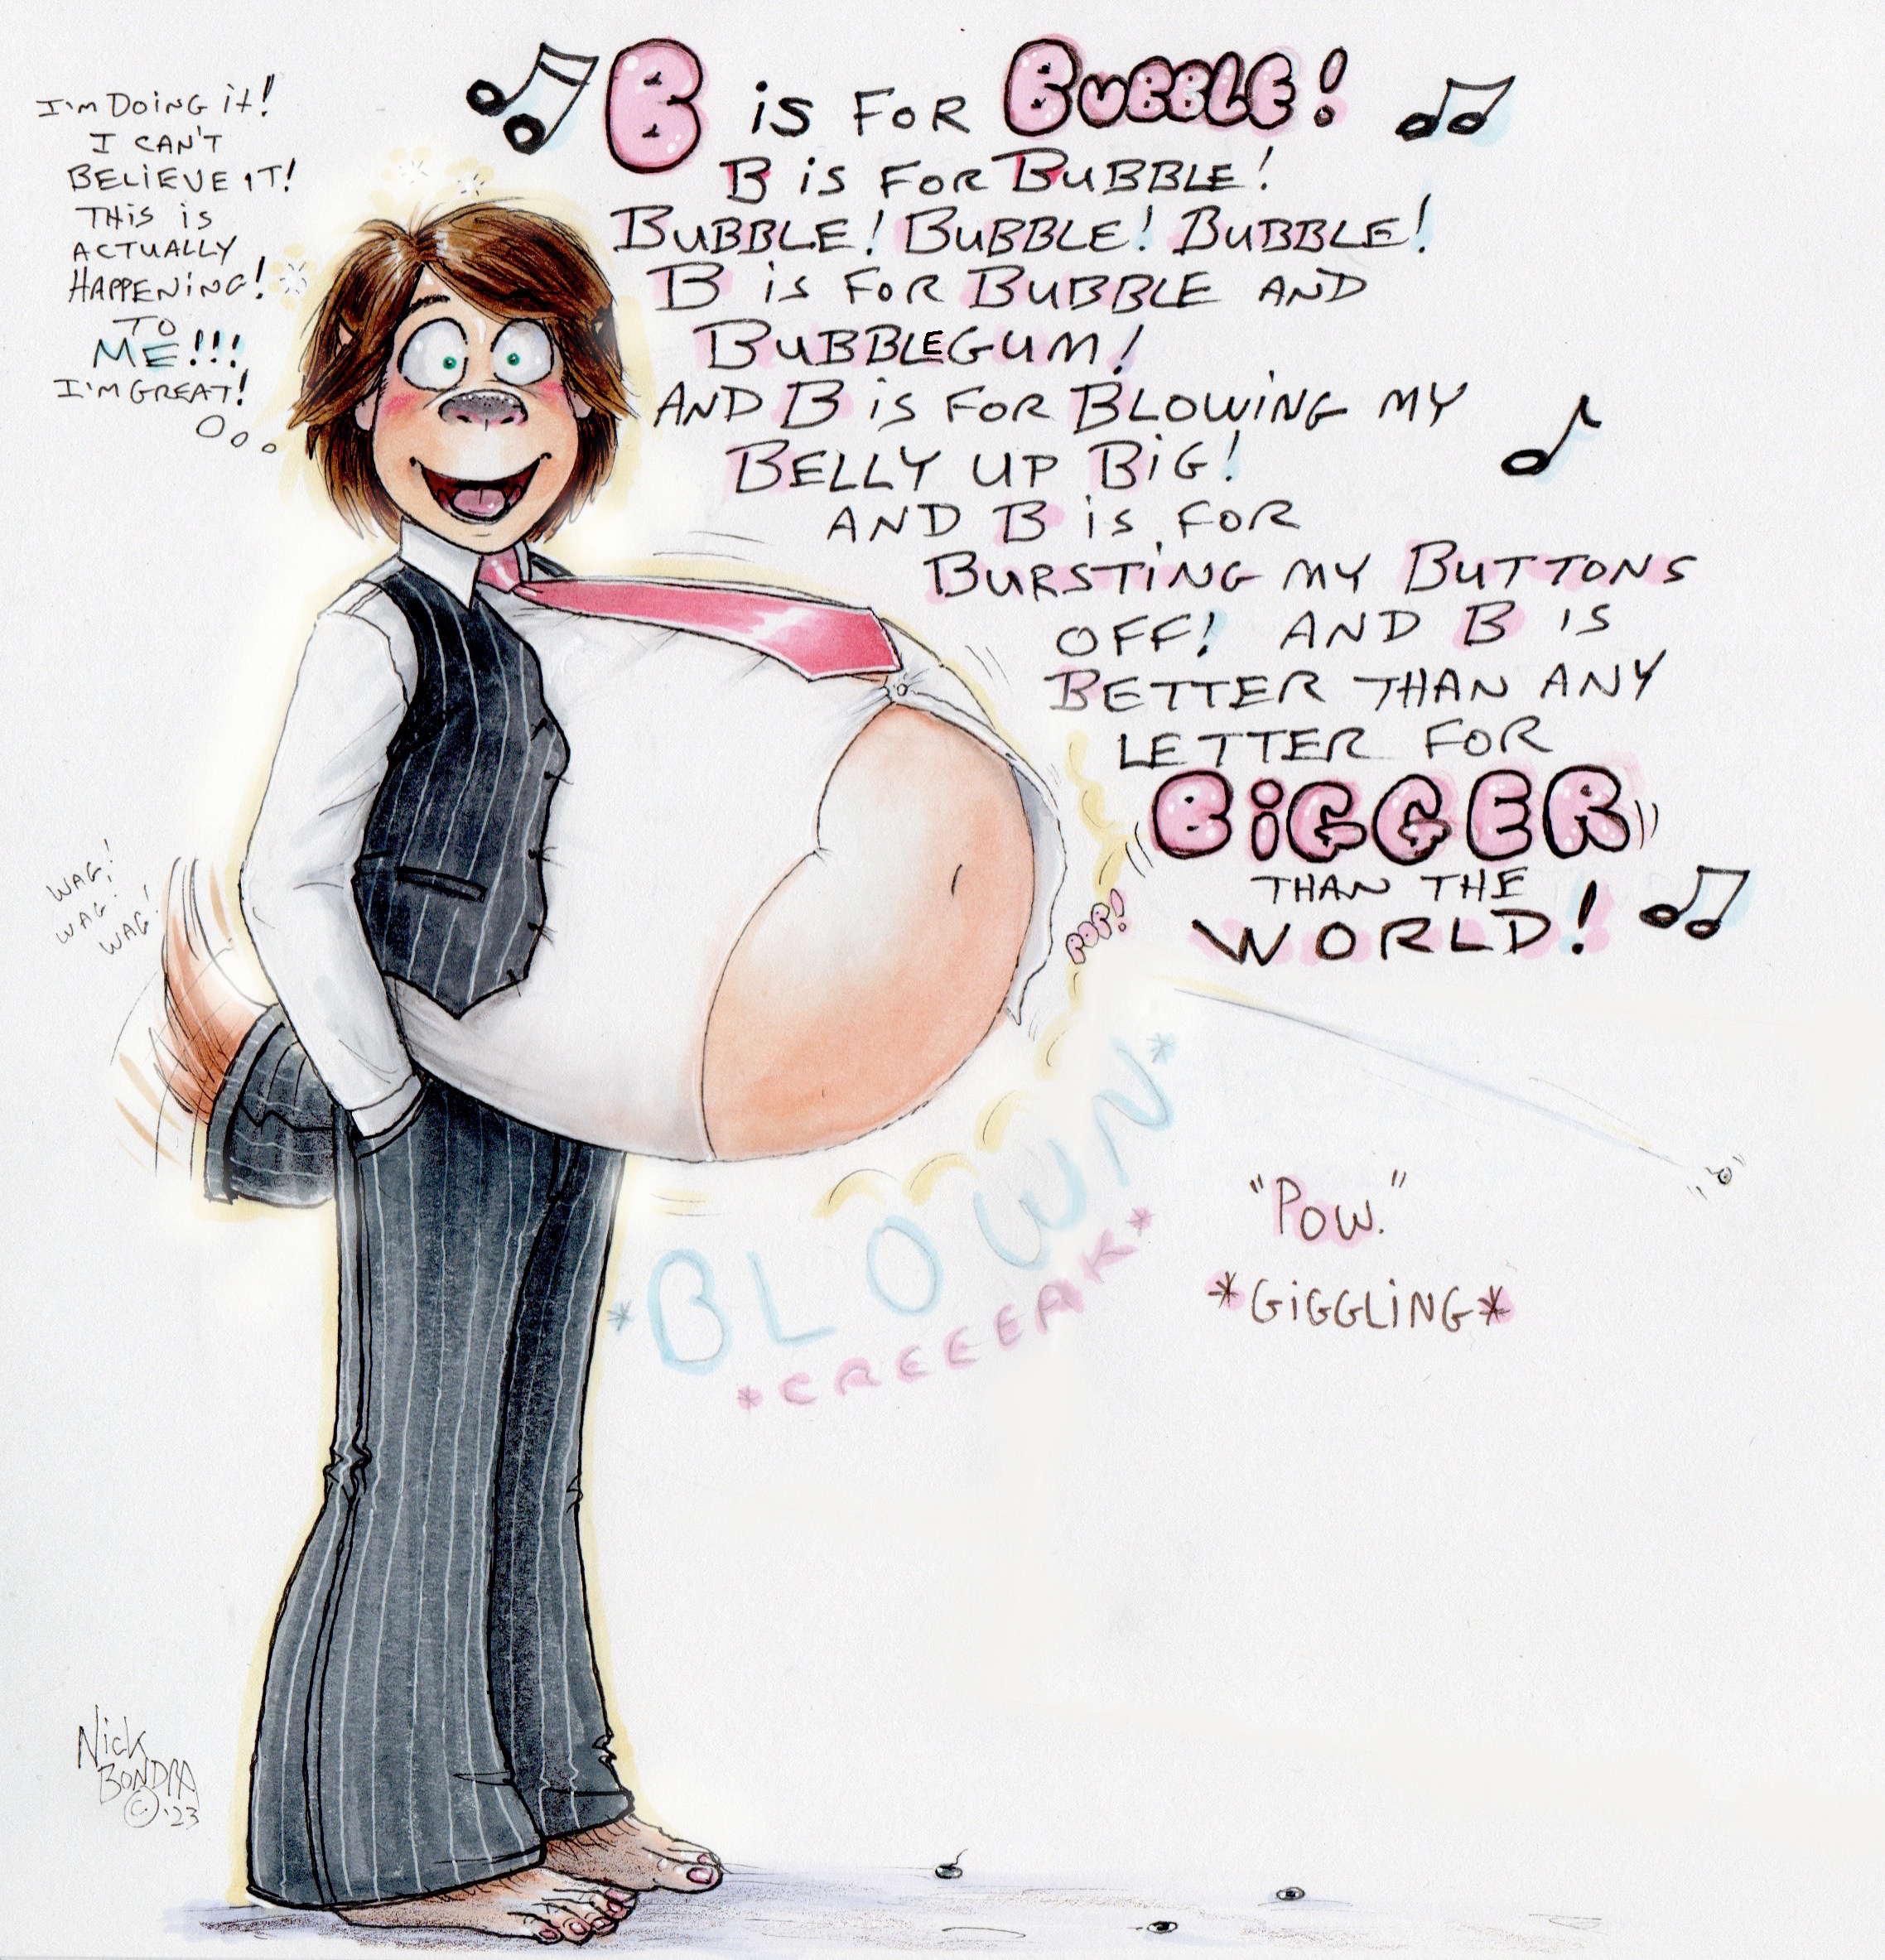 I'm Doing it!
I can't
believe it!
This is
actually
happening!
to
me!!!
I'm great!
B is for Bubble!
B is for Bubble!
Bubble! Bubble! Bubble!
B is for Bubble and
Bubblegum!
And B is for Blowing my
Belly up Big!
And B is for
Bursting my Buttons
off! And B is
Better than any
letter for
Bigger
than the
World!
Wag!
Wag!
Wag!
Pop!
*BLOWN*
*CREEEEAK*
"Pow."
*Giggling*
Nick
Bondra
© '23